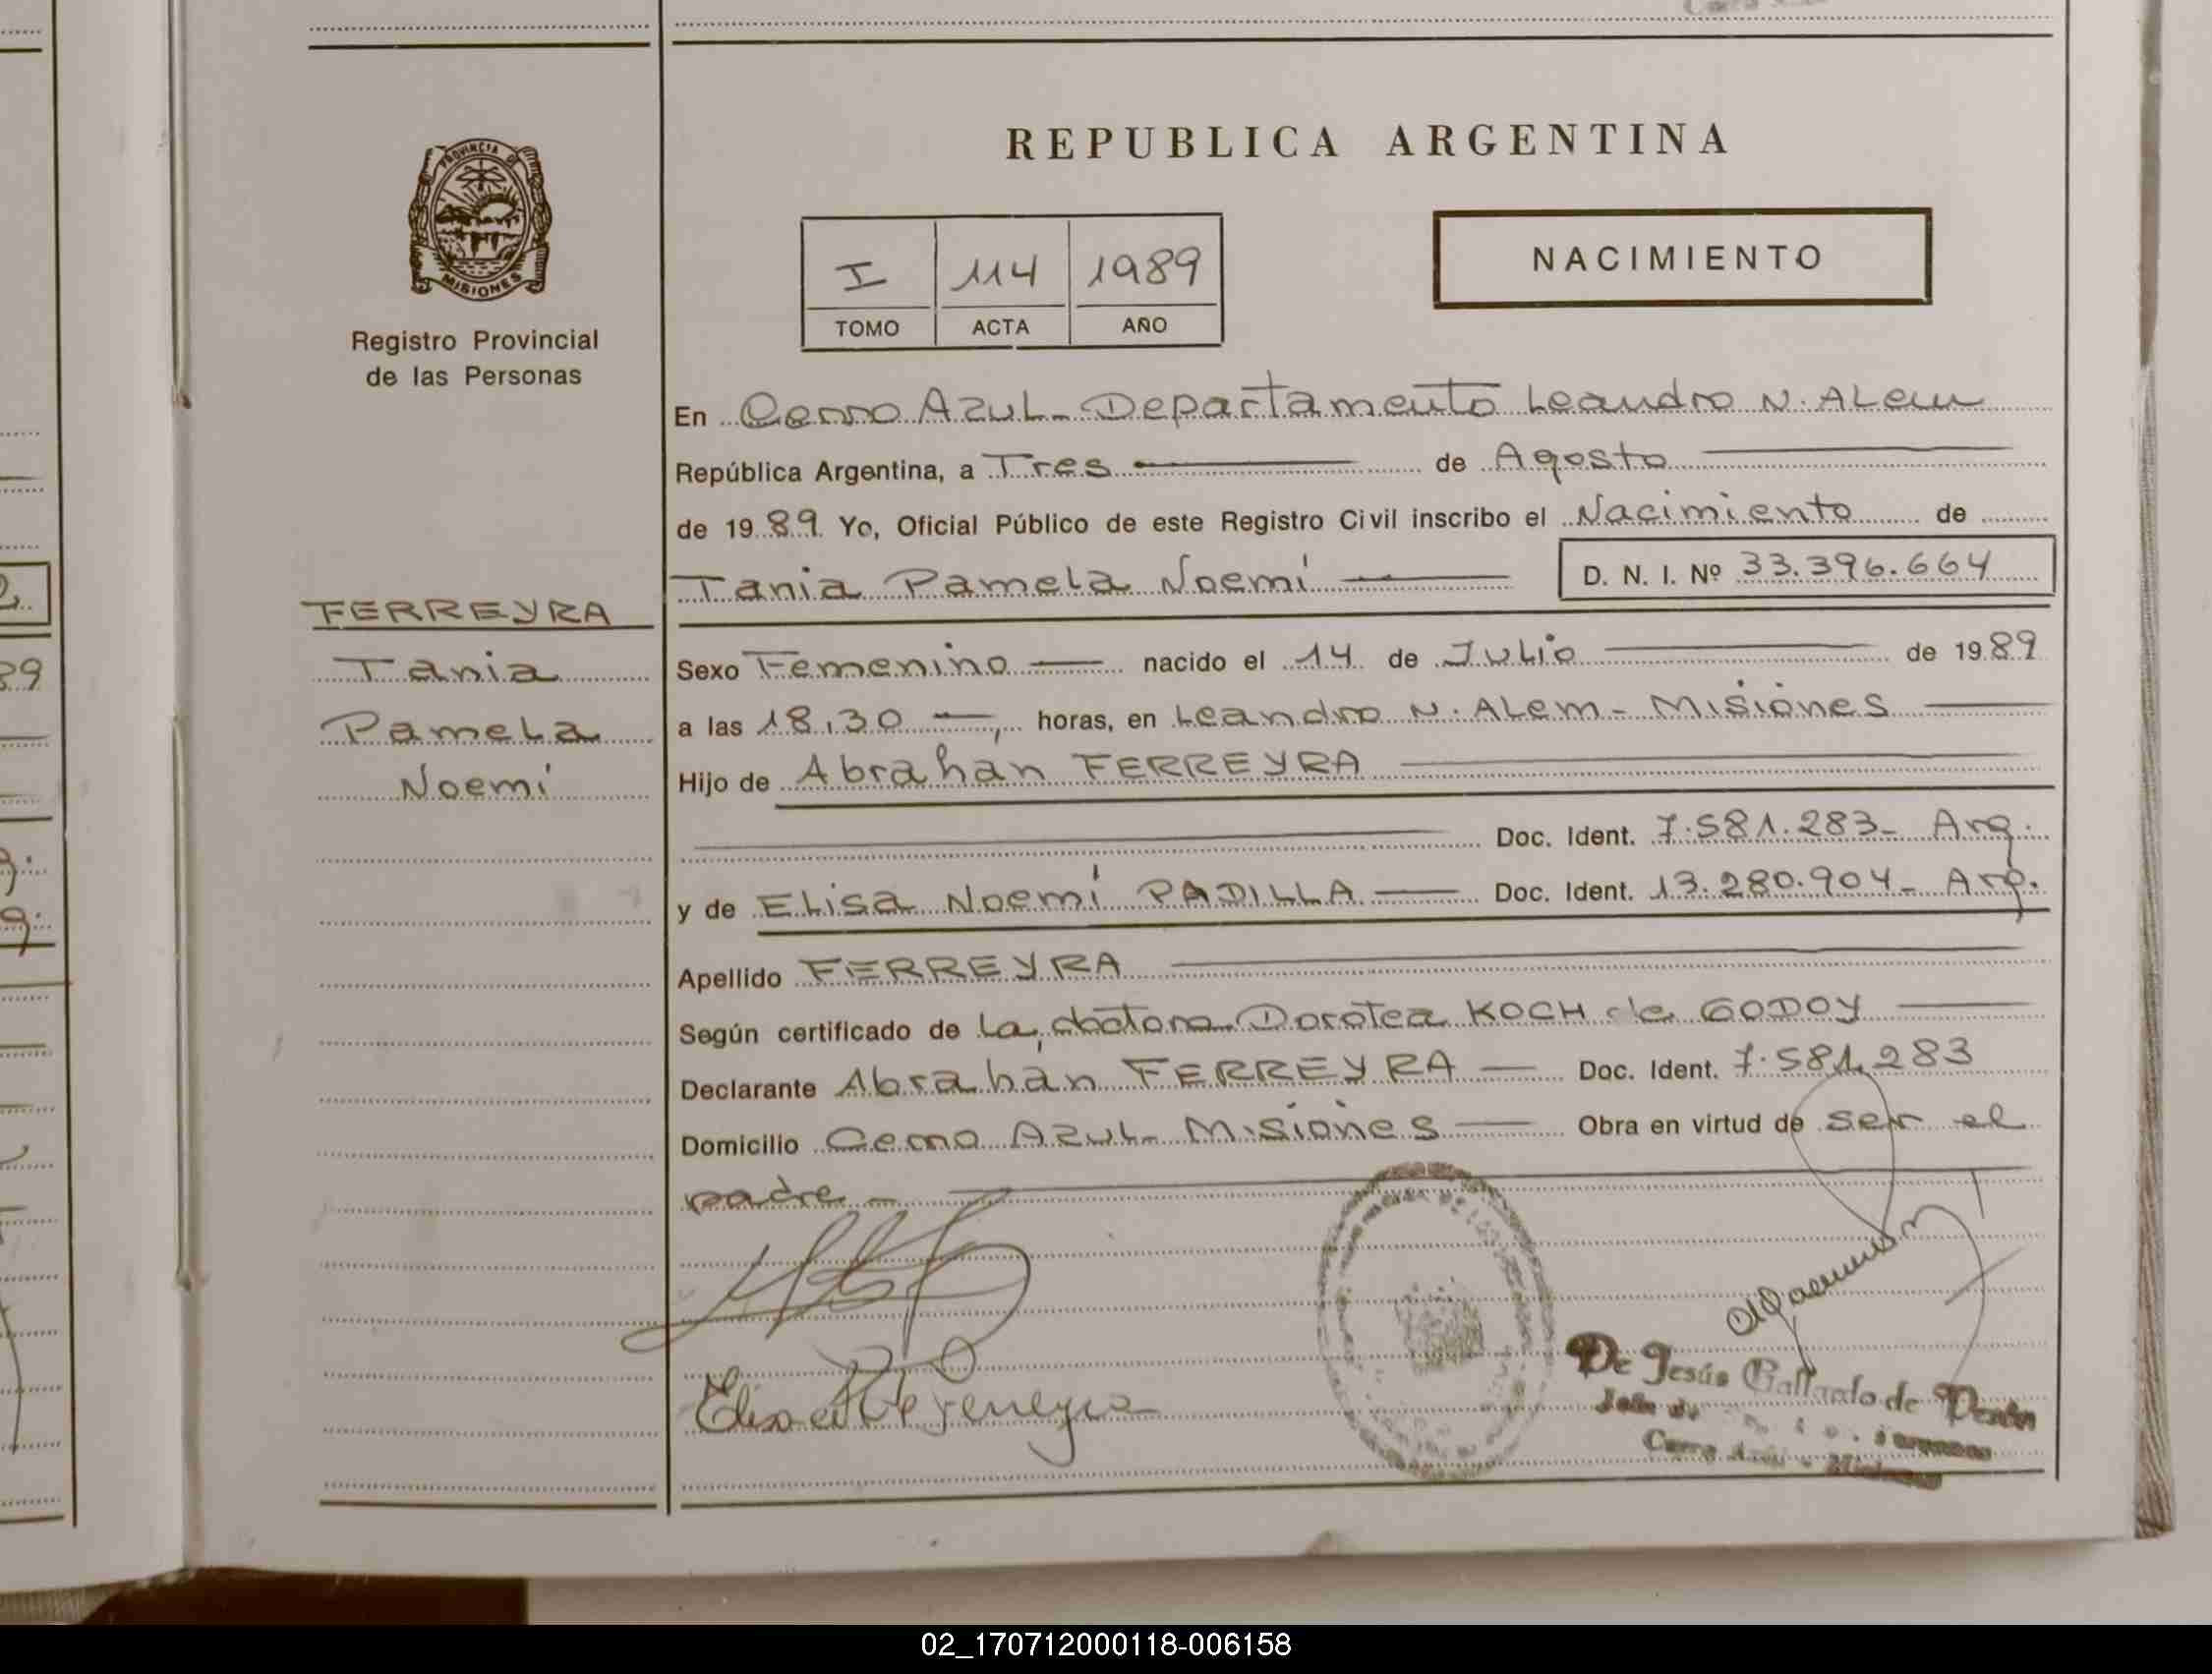 REPUBLICA ARGENTINA
PROVINCIA DE
MISIONES
Registro Provincial
de las Personas
I 114 1989
TOMO ACTA AÑO
NACIMIENTO
En Cerro Azul - Departamento Leandro N. Alem
República Argentina, a Tres de Agosto
de 19 89 Yo, Oficial Público de este Registro Civil inscribo el Nacimiento de
Tania Pamela Noemí D. N. I. Nº 33.396.664
FERREYRA
Tania
Pamela
Noemí
Sexo Femenino nacido el 14 de Julio de 19 89
a las 18,30 horas, en Leandro N. Alem - Misiones
Hijo de Abrahán FERREYRA
Doc. Ident. 7.581.283 - Arg.
y de Elisa Noemí PADILLA Doc. Ident. 13.280.904 - Arg.
Apellido FERREYRA
Según certificado de la Dorotea KOCH de GODOY
Declarante Abrahán FERREYRA Doc. Ident. 7.581.283
Domicilio Cerro Azul - Misiones Obra en virtud de ser el
padre
De Jesús Gallardo de
Cerro Azul - Misiones
02_170712000118-006158